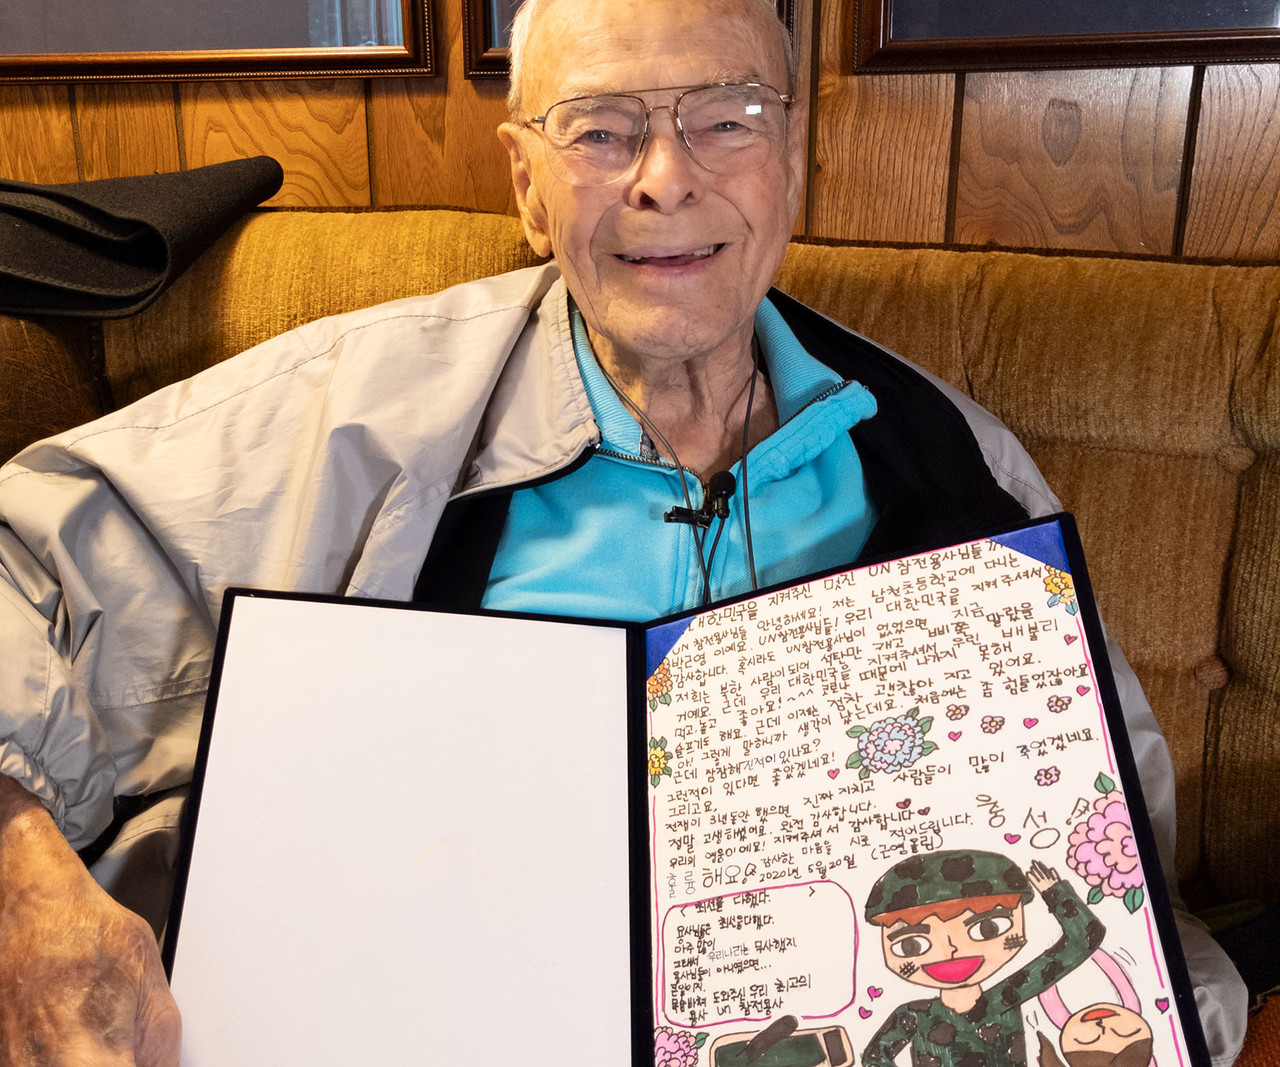 대한민국을 지켜주신 멋진 UN 참전용사님들께
UN 참전용사님들 안녕하세요! 저는 남천초등학교에 다니는
박근영 이에요. UN참전용사님들! 우리 대한민국을 지켜주셔서
감사합니다. 혹시라도 UN참전용사님이 없었으면 지금
저희는 북한 사람이 되어 석탄만 캐고 삐쩍 말랐을
거예요. 근데 우리 대한민국을 지켜주셔서 우린 배불리
먹고, 놀고 좋아요! ^^^ 코로나 때문에 나가지 못해
슬프기도 해요. 근데 이제는 점차 괜찮아 지고 있어요.
아! 그렇게 말하니까 생각이 났는데요. 처음에는 좀 힘들었잖아요
근데 잠잠해진적이 있나요?
그런적이 있다면 좋았겠네요!
그리고요,
전쟁이 3년동안 했으면 진짜 지치고 사람들이 많이 죽었겠네요.
정말 고생하셨어요. 완전 감사합니다.
우리의 영웅이에요! 지켜주셔서 감사합니다
감사한 마음을 시로 적어드립니다.
훌륭해요 2020년 5월 20일 (근영올림)
충성!
< 최선을 다했다. >
용사님들은 최선을다했다.
아주 많이
그래서 우리나라는 무사했지
용사님들이 아니였으면...
큰일이지.
목숨바쳐 도와주신 우리 최고의
용사 un 참전용사